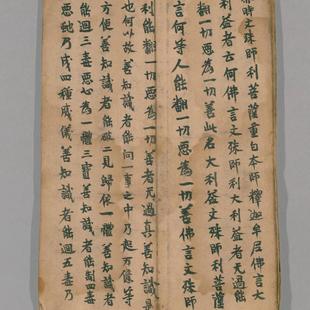 時文殊師利菩薩重白本師釋迦牟尼佛言大
利益者云何佛言文殊師利大利益者无過能
翻一切惡為一切善此名大利益文殊師利菩薩
言何等人能翻一切惡為一切善佛言文殊師
利能翻一切惡為一切善者无過真善知識是
也何以故善知識者能問一事之中乃起万億等
方便善知識者能破二見歸依一體善知識者
能迴三毒惡心為一體三寶善知識者能制四毒
惡蛇乃成四種威儀善知識者能迴五毒乃